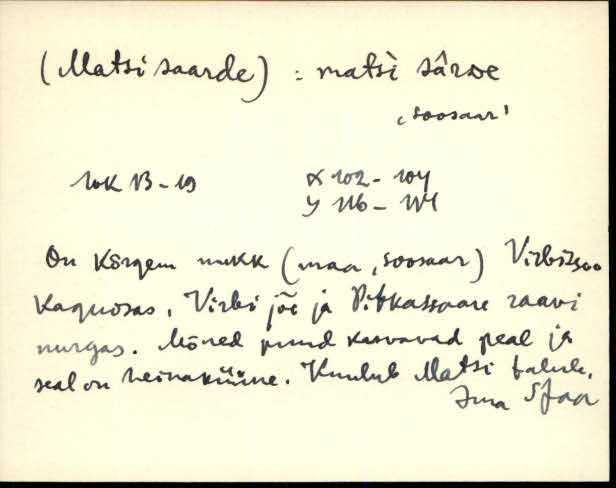 (Matsi saarde) : matsì sâr̄de
‚soosaar'
10K B-19 X 102-104
Y 116-114
On kõrgem nukk (maa, soosaar) Virbissoo
kaguosas, Virbi jõe ja Pitkassaare raavi
nurgas. Mõned puud kasvavad peal ja
seal on heinaküüne. Kuulub Matsi talule.